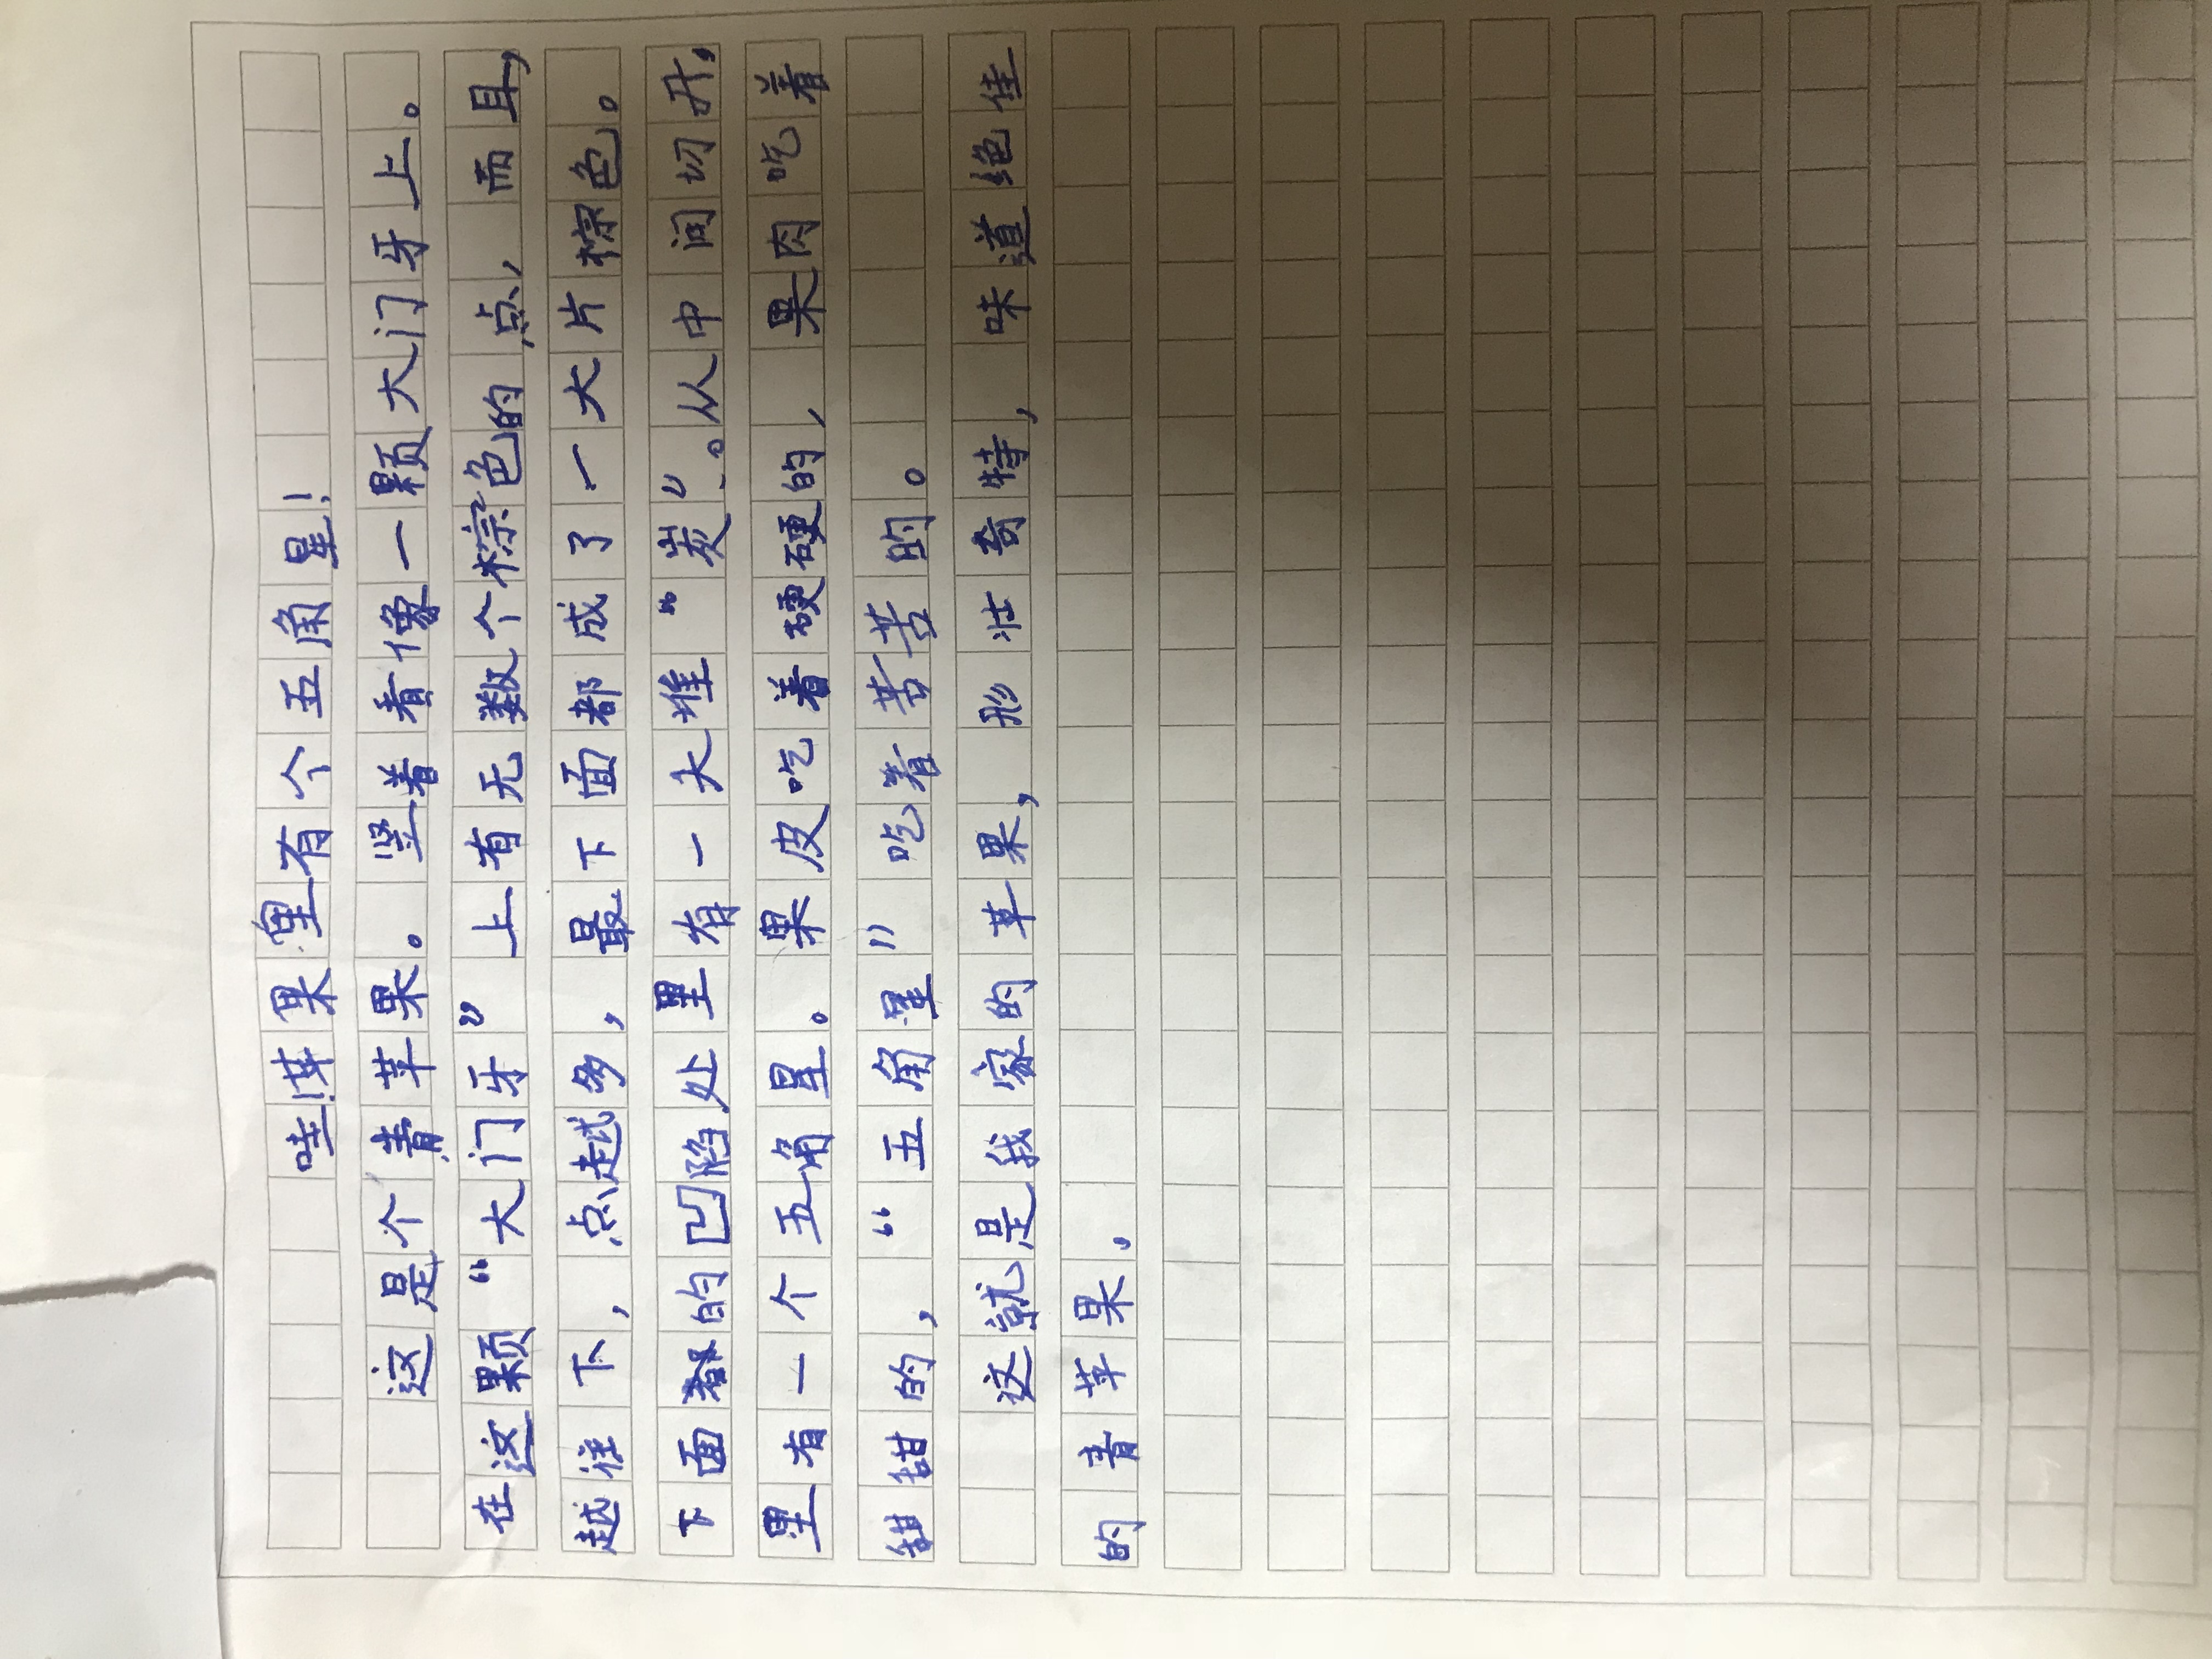 哇!苹果里有个五角星!
这是个青苹果。竖着看像一颗大门牙上。
在这颗“大门牙”上有无数个棕色的点,而且,
越往下,点越多,最下面都成了一大片棕色。
下面的凹陷处里有一大堆“炭”。从中间切开,
里有一个五角星。果皮吃着硬硬的,果肉吃着
甜甜的,“五角星”吃着苦苦的。
这就是我家的苹果,形壮奇特,味道绝佳
的青苹果。